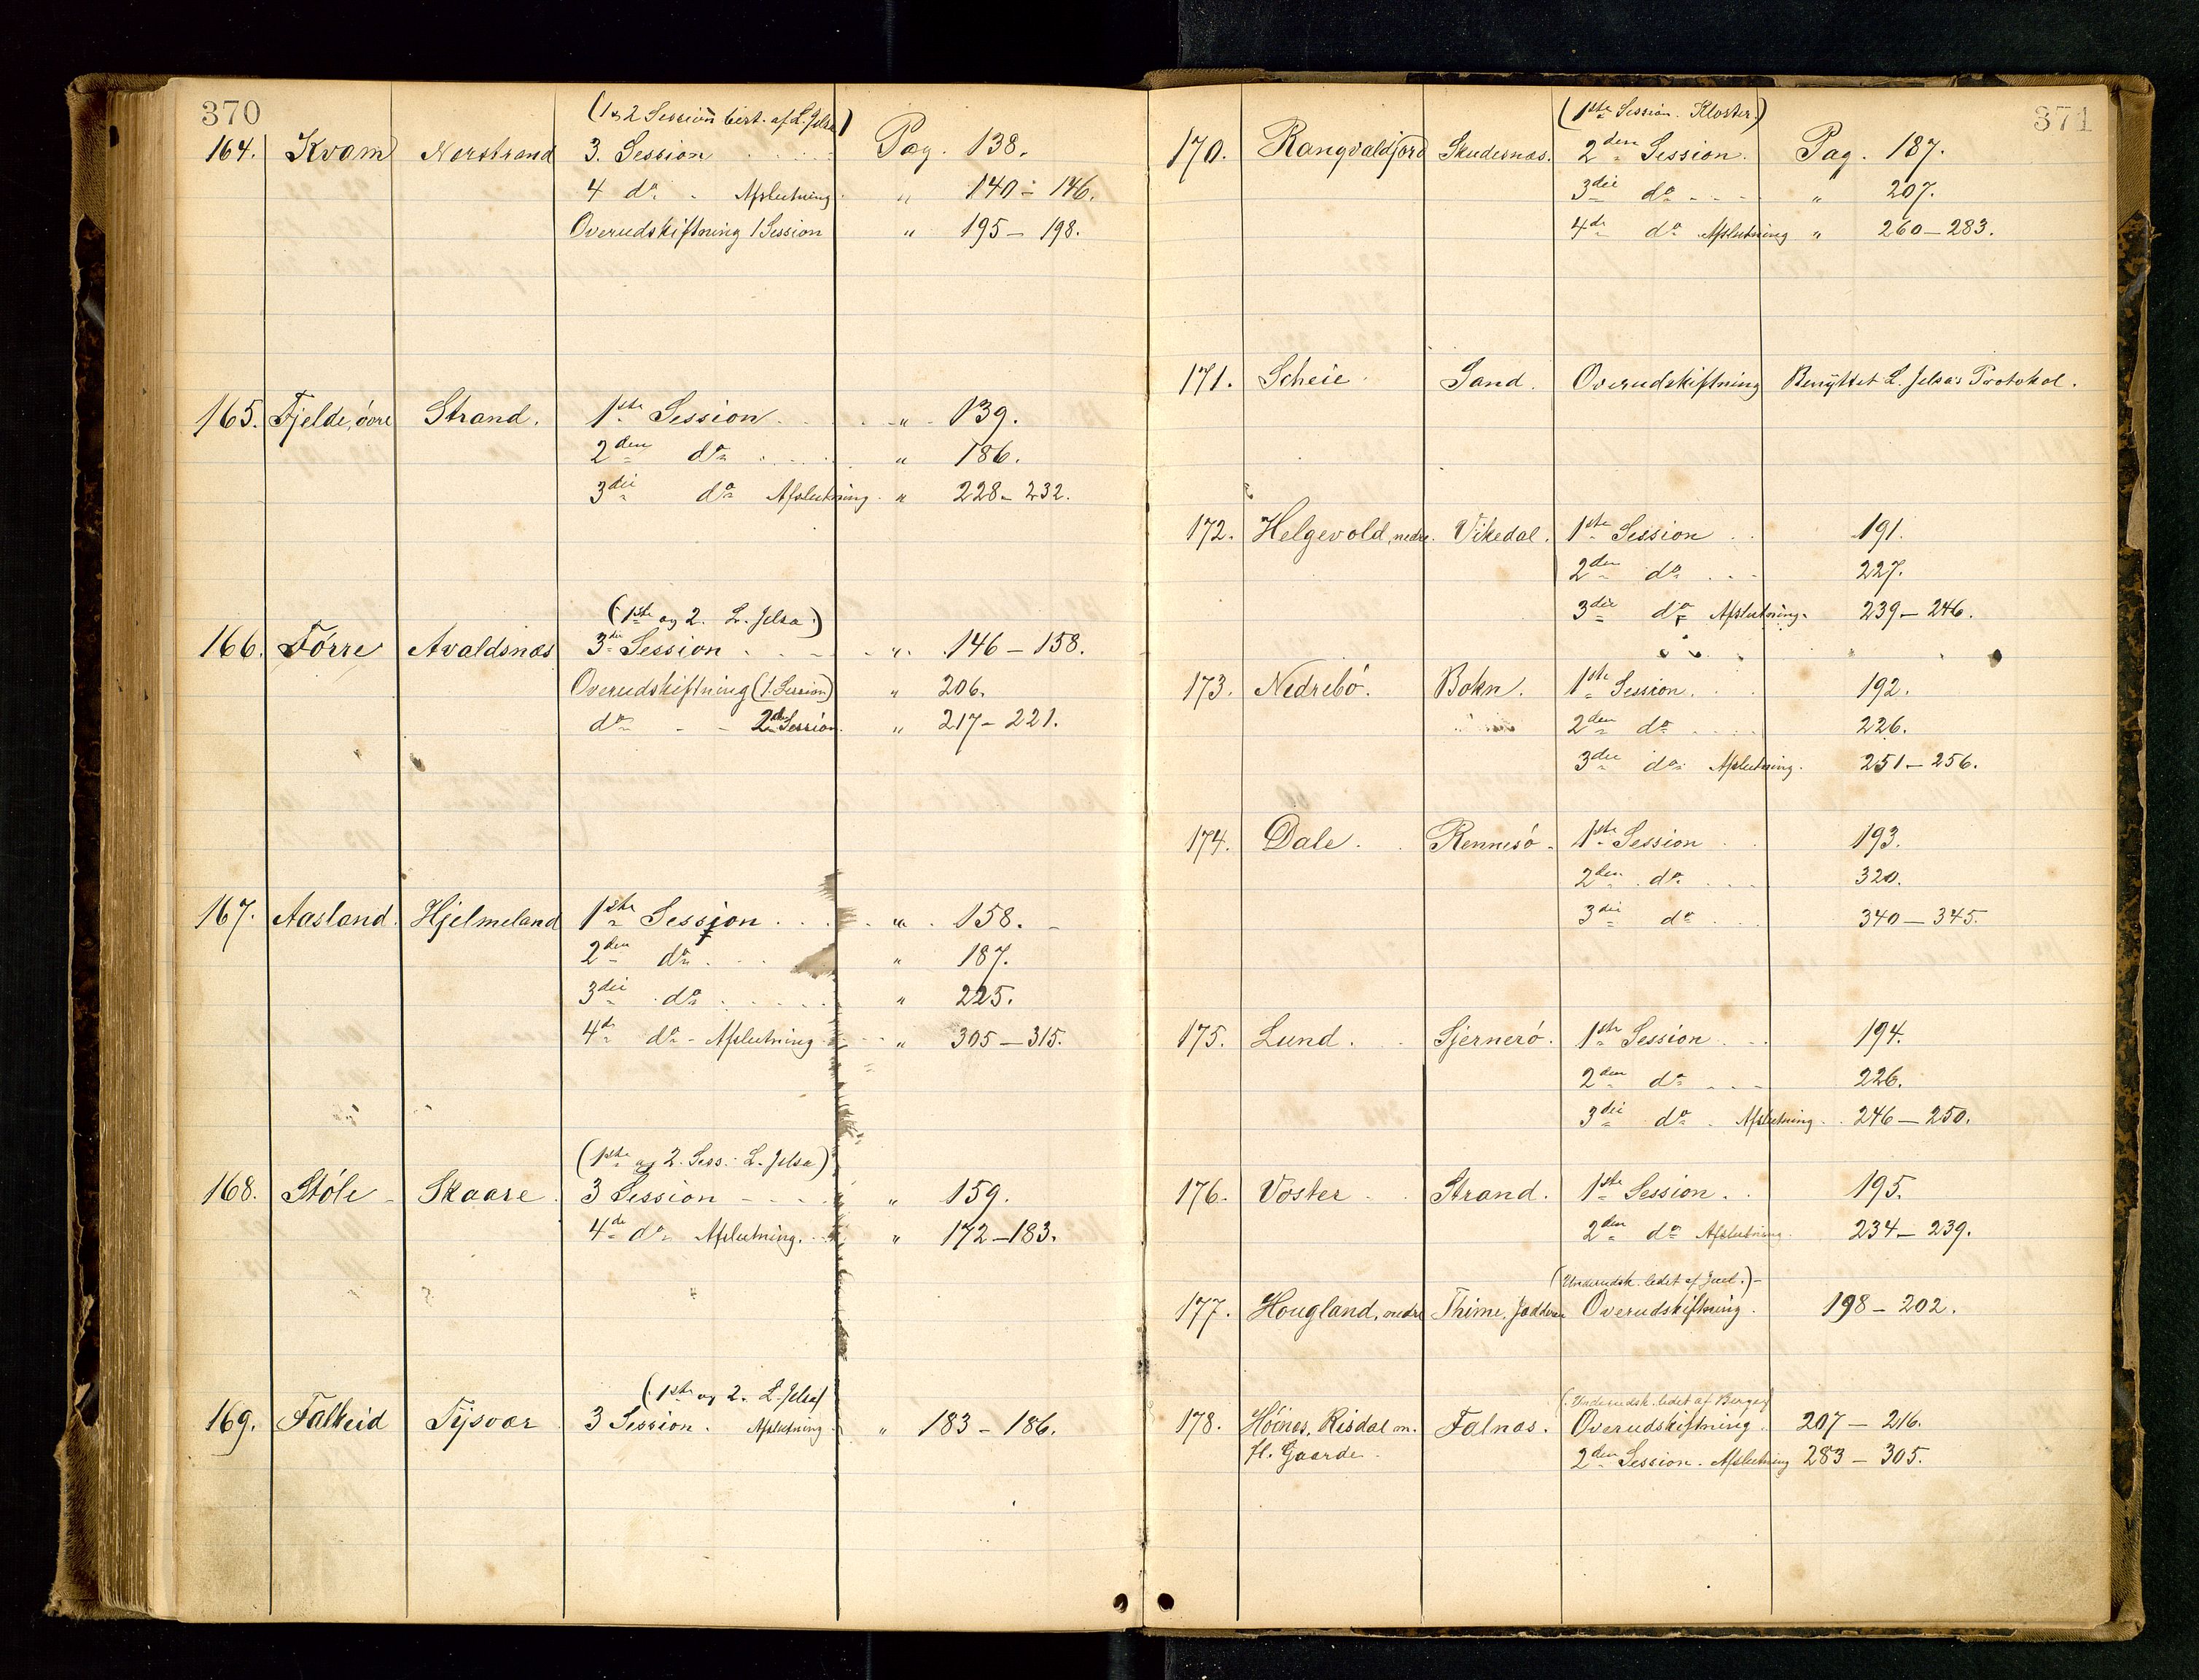 370
(1 og 2 Session best. af L. Jelsa)
164. Kvam Nerstrand 3. Session Pag. 138.
4 do Afslutning. " 140 - 146.
Overudskiftning 1 Session " 195 - 198.
165. Fjelde, övre Strand. 1ste Session " 139.
2den do " 186.
3die do Afslutning. " 228 - 232.
(1ste og 2. L. Jelsa)
166. Förre Avaldsnæs 3die Session " 146 - 158.
Overudskiftning (1. Session) " 206.
do 2den Session. " 217 - 221.
167. Aasland. Hjelmeland 1ste Session " 158.
2den do " 187.
3die do " 225.
4de do - Afslutning " 305 - 315.
(1ste og 2. Sess. L. Jelsa)
168. Stöle Skaare. 3 Session " 159.
4de do Afslutning. " 172 - 183.
(1ste og 2. L. Jelsa)
169. Falkeid Tysvær 3 Session. Afslutning " 183 - 186.
371
(1ste Session. Kloster.)
170. Rangvaldjord Skudesnæs. 2den Session. Pag. 187.
3die do " 207.
4de do Afslutning " 260 - 283.
171. Scheie Sand. Overudskiftning Benyttet L. Jelsas Protokol.
172. Helgevold, nedre. Vikedal. 1ste Session 191.
2den do 227.
3die do Afslutning. 239 - 246.
173. Nedrebö. Bokn. 1ste Session. 192.
2den do 226.
3die do Afslutning. 251 - 256.
174. Dale. Rennesö 1ste Session 193.
2den do 320.
3die do 340 - 345.
175. Lund. Sjernerö. 1ste Session 194.
2den do 226.
3die do Afslutning. 246 - 250.
176. Voster Strand. 1ste Session. 195.
2den do Afslutning. 234 - 239.
(Underudsk. ledet af Juel.) -
177. Hougland, nedre Thime, Jædderen Overudskiftning. 198 - 202.
(Underudsk. ledet af Berger)
178. Höines, Risdal m. Falnæs. Overudskiftning. 207 - 216.
fl. Gaarde. 2den Session. Afslutning 283 - 305.